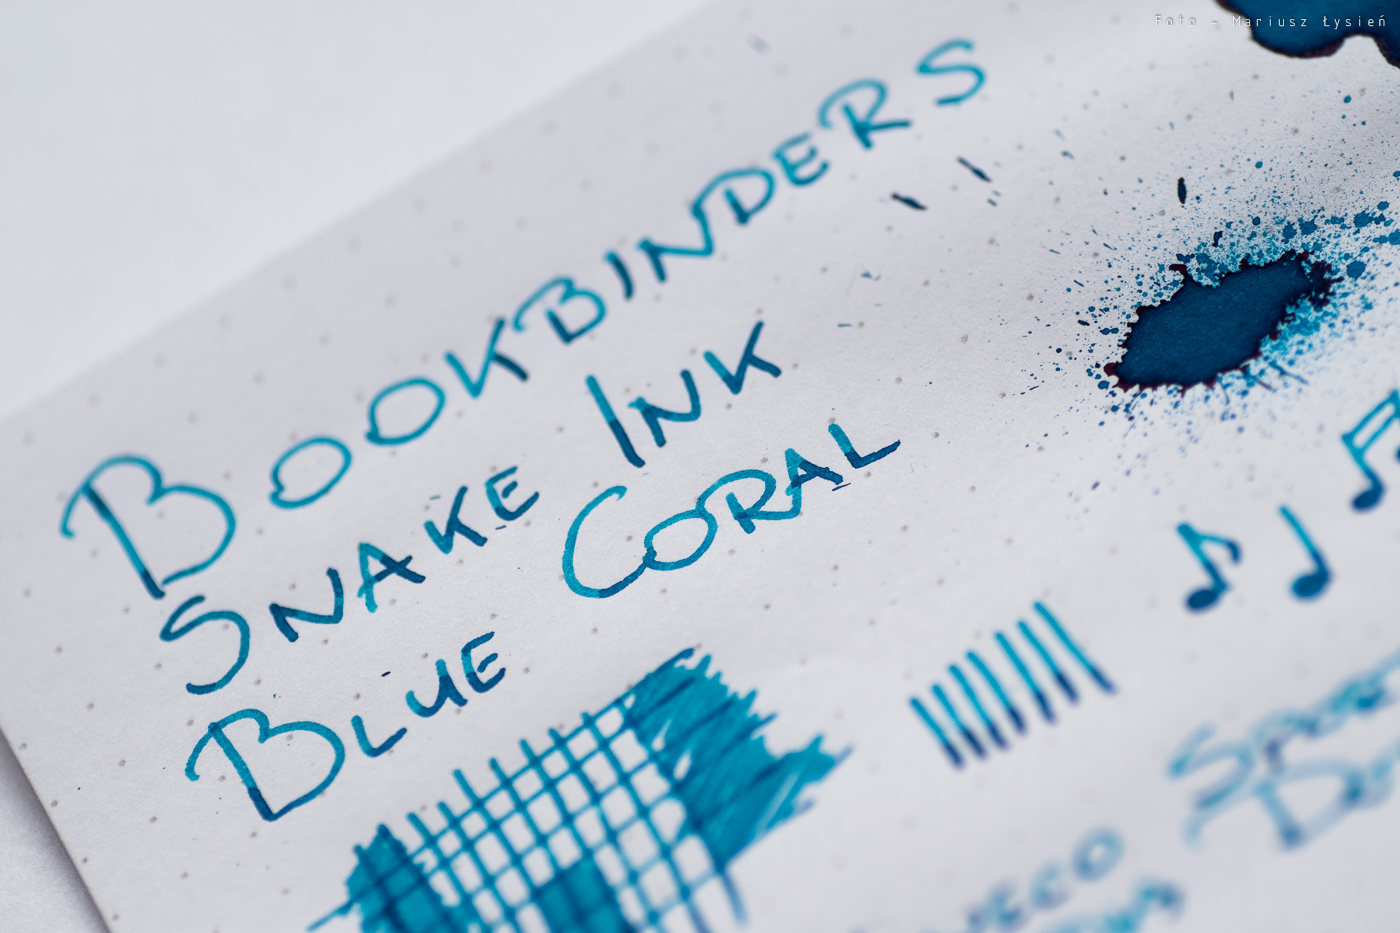 Foto - Mariusz Łysień
BOOKBINDERS
SNAKE INK
BLUE CORAL